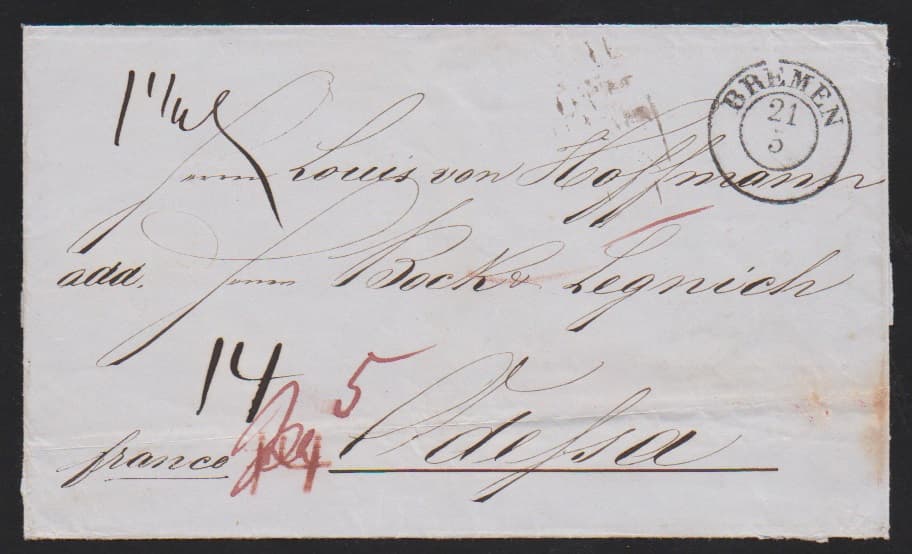 BREMEN
21
5
Herrn Louis von Hoffmann
add. Herrn Bock & Legnich
14
5
franco Odessa